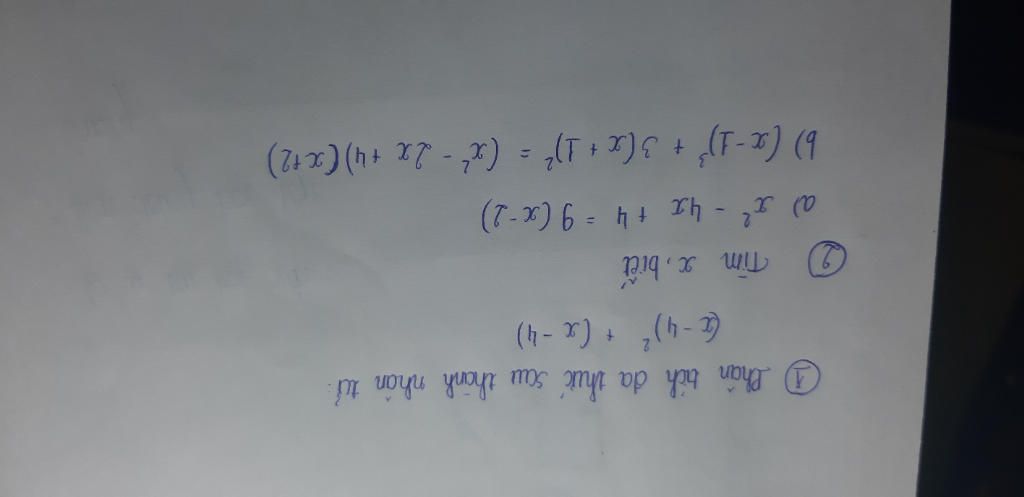 ① Phân tích đa thức sau thành nhân tử:
(x-4)² + (x-4)
② Tìm x, biết
a) x² - 4x + 4 = 9(x-2)
b) (x-1)³ + 3(x+1)² = (x² - 2x + 4)(x+2)